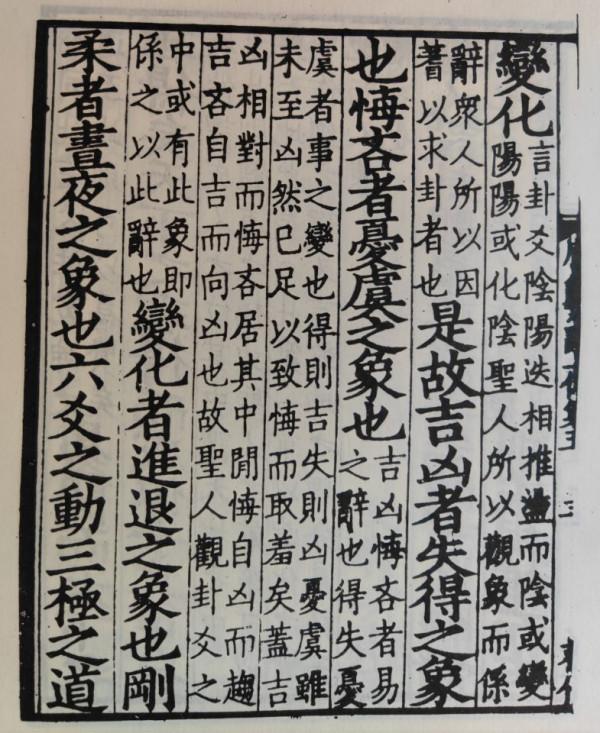 變化
言卦爻陰陽迭相推盪而陰或變
陽陽或化陰聖人所以觀象而係
辭衆人所以因
蓍以求卦者也
是故吉凶者失得之象
也悔吝者憂虞之象也
吉凶悔吝者易
之辭也得失憂
虞者事之變也得則吉失則凶憂虞雖
未至凶然已足以致悔而取羞矣蓋吉
凶相對而悔吝居其中閒悔自凶而趨
吉吝自吉而向凶也故聖人觀卦爻之
中或有此象即
係之以此辭也
變化者進退之象也剛
柔者晝夜之象也六爻之動三極之道